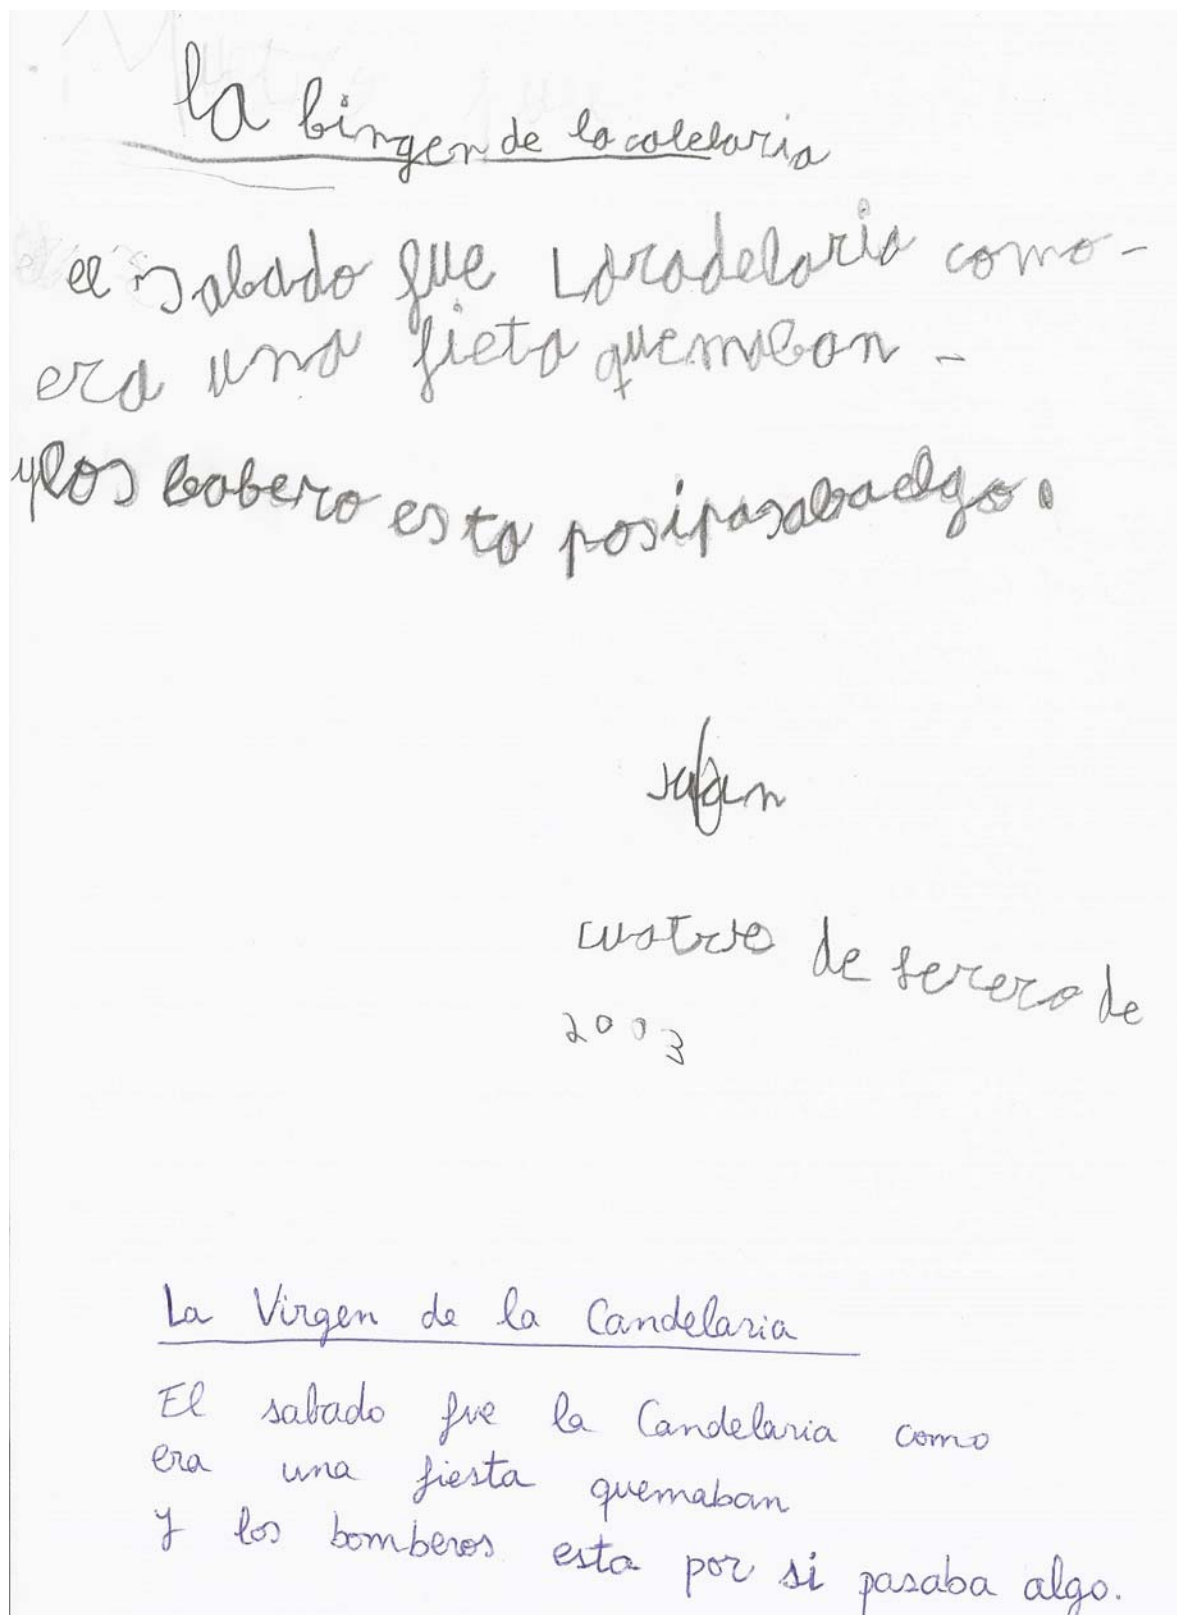 la bingen de la calelaria
el sabado fue Lacadelaria como-
era una fieta quemaban -
y los bobero esta posipasabaalgo.
cuatro de ferero de
2003
La Virgen de la Candelaria
El sabado fue la Candelaria como
era una fiesta quemaban
Y los bomberos esta por si pasaba algo.